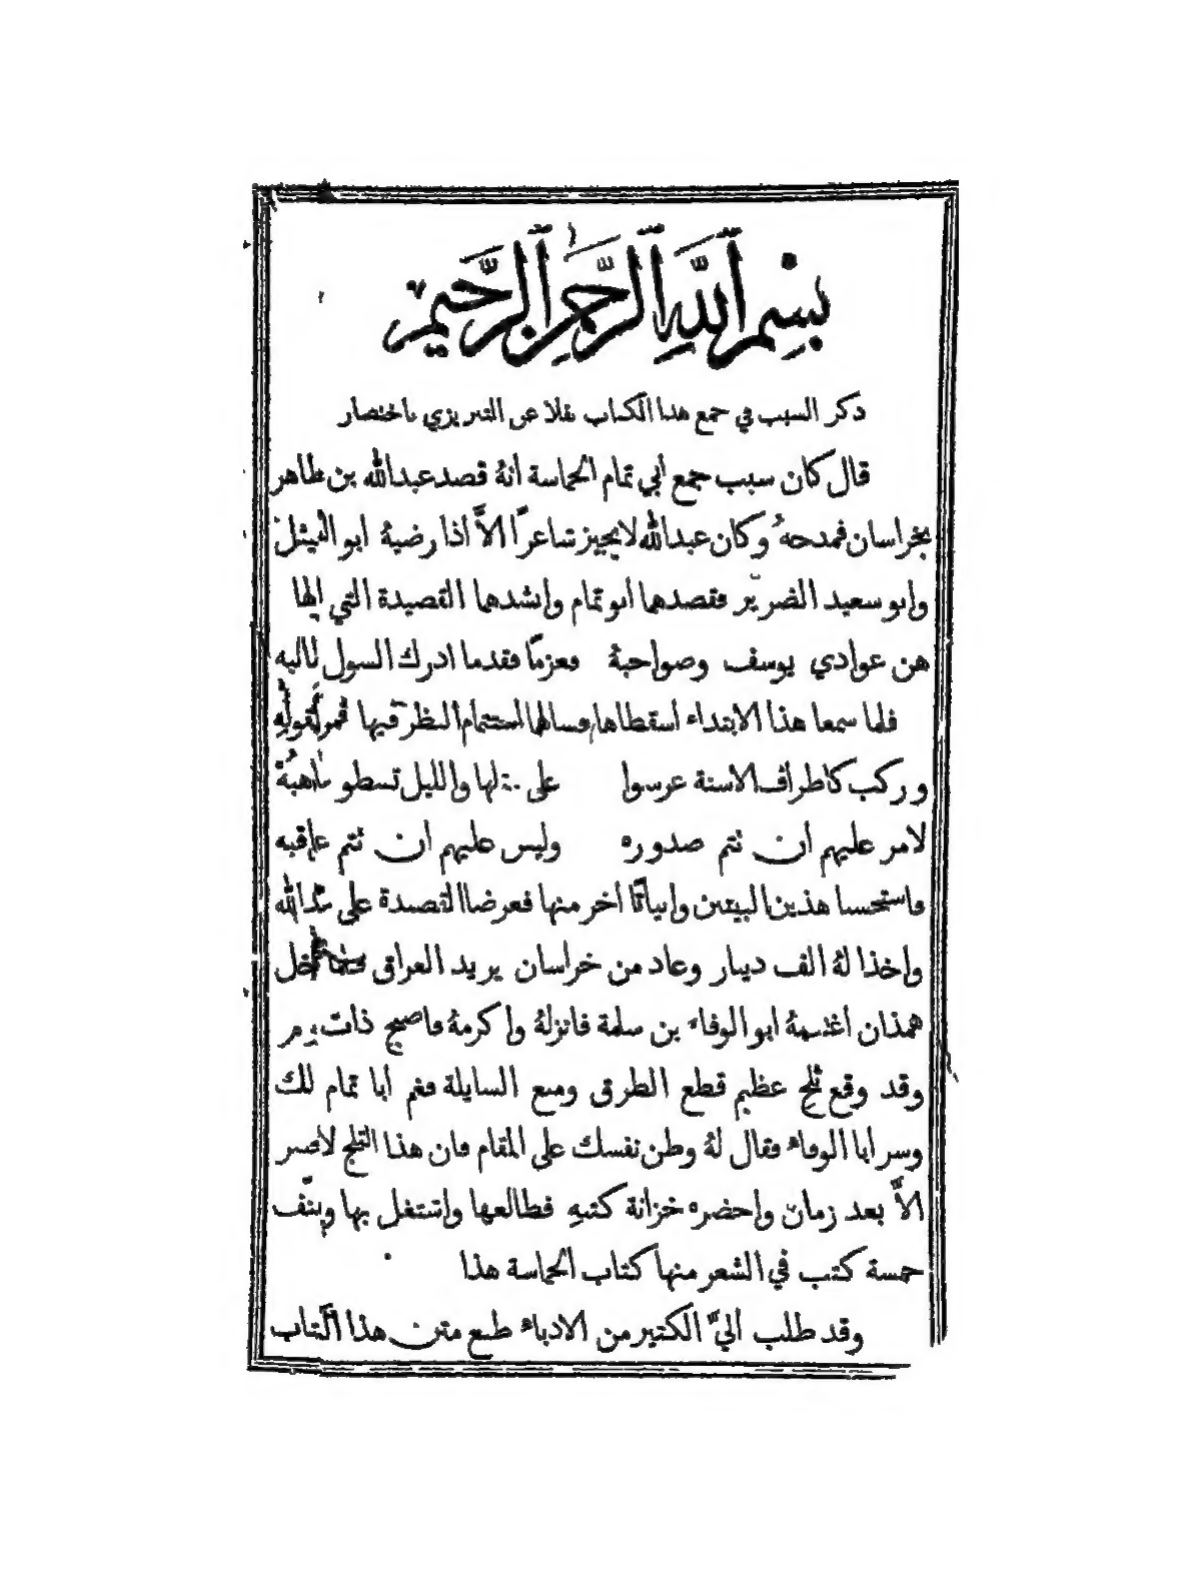 بِسْمِ ٱللَّهِ ٱلرَّحْمَٰنِ ٱلرَّحِيمِ
ذكر السبب في جمع هذا الكتاب نقلا عن التبريزي باختصار
قال كان سبب جمع ابي تمام الحماسة انهُ قصد عبدالله بن طاهر
بخراسان فمدحهُ وكان عبدالله لا يجيز شاعرًا الاَّ اذا رضيهُ ابو العميثل
وابو سعيد الضرير فقصدهما ابو تمام وانشدهما القصيدة التي اولها
هن عوادي يوسف وصواحبهُ فعزمًا فقدما ادرك السول طالبه
فلما سمعا هذا الابتداء اسقطاها فسالهما استتمام النظر فيها فمرا بقوله
وركب كاطراف الاسنة عرسوا على مثلها والليل تسطو غياهبهُ
لامر عليهم ان تتم صدوره وليس عليهم ان تتم عواقبه
فاستحسنا هذين البيتين وابياتًا اخر منها فعرضا القصيدة على عبدالله
واخذا لهُ الف دينار وعاد من خراسان يريد العراق فلما دخل
همذان اغتنمهُ ابو الوفاء بن سلمة فانزلهُ واكرمهُ فاصبح ذات يوم
وقد وقع ثلج عظيم قطع الطرق ومنع السابلة فغم ابا تمام ذلك
وسر ابا الوفاء فقال لهُ وطن نفسك على المقام فان هذا الثلج لا ينحسر
الاَّ بعد زمان واحضره خزانة كتبهِ فطالعها واشتغل بها وصنَّف
خمسة كتب في الشعر منها كتاب الحماسة هذا
وقد طلب اليَّ الكثير من الادباء طبع متن هذا الكتاب